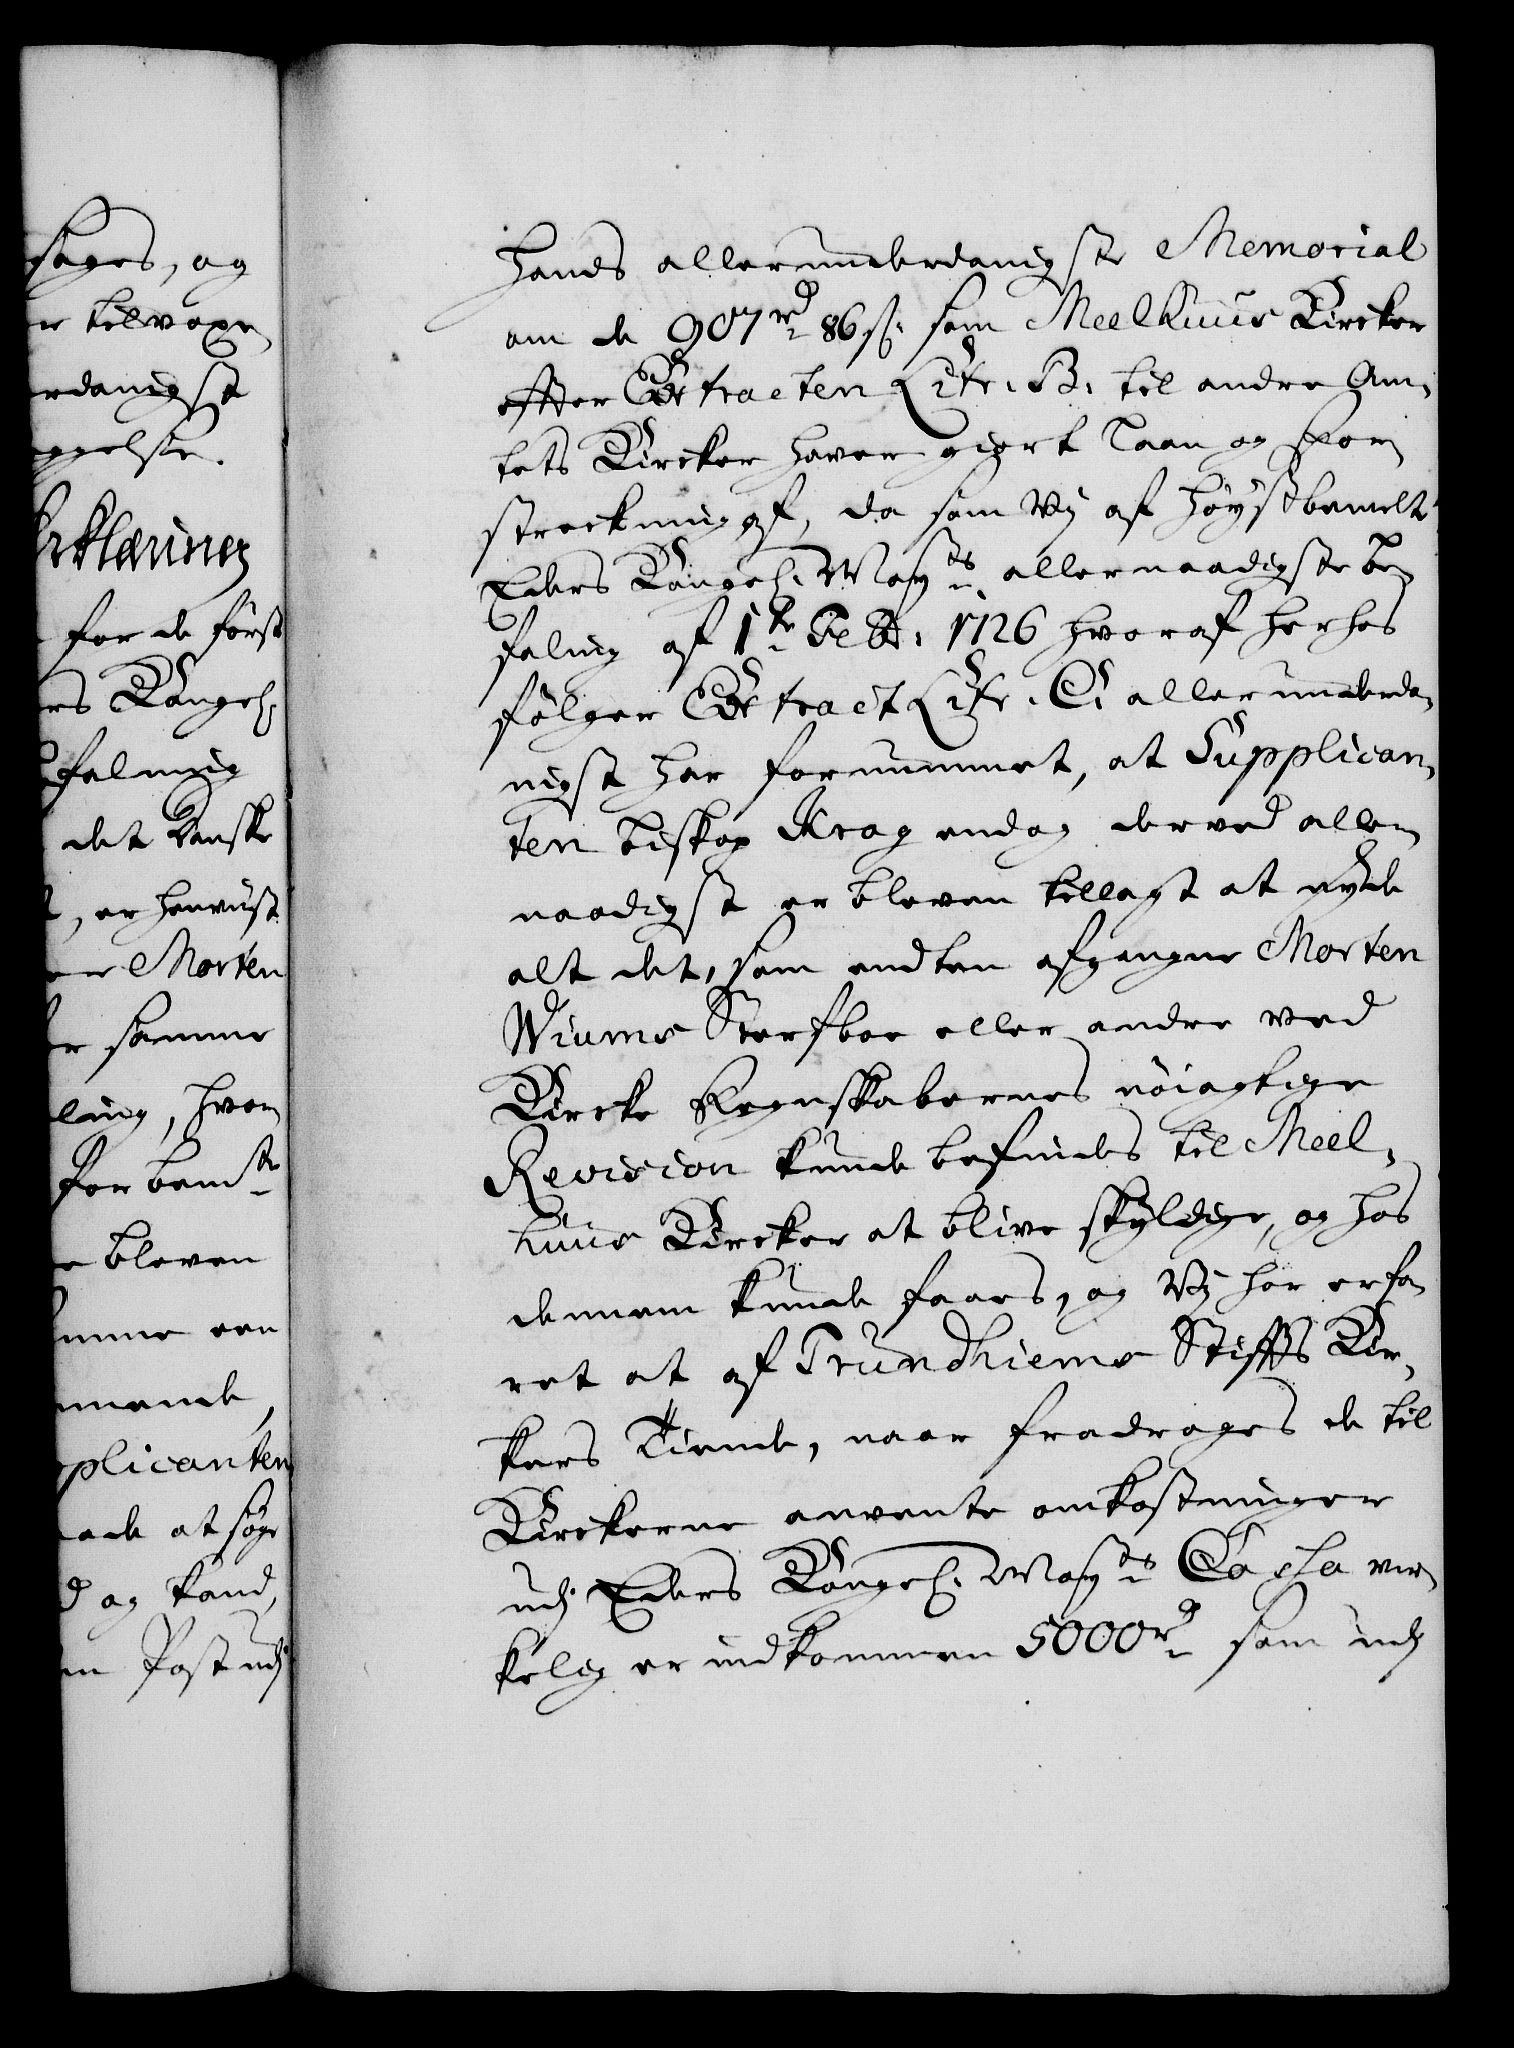 sages, og
er tilvoxen
rdanigst
ggelse.
Erklæring
for de först
rs Kongel:
falning
det Danske
, er henvüst
Morten
r samme
ling, hvor
for bemte
bleven
mme een
nnende,
pplicanten
ade at søge
d og kand,
n Post udj
hands allerunderdanigste Memorial
om de 907 rd 86 s: som Meelhuus Kircker
efter Extracten Litr: B: til andre Am-
tets Kircker haver giort Laan og For-
streckning af, da som Vj af höystbemelte
Eders Kongel: Mayts allernaadigste be-
faling af 1te Febr: 1726 hvoraf herhos
følger Extract Litr: C: allerunderda-
nigst har fornummet, at Supplican-
ten Biskop Krog endog derved aller-
naadigst er bleven tillagt at nyde
alt det, som endten afgangne Morten
Wiums Sterfboe eller andre ved
Kircke Regnskabernes nöiagtige
Revision kunde befindes til Meel-
huus Kircker at blive skyldige, og hos
dennem kunde faaes, og Vj har erfa-
ret at af Trundhiems Stiffts Kir-
kers Tiende, naar fradrages de til
Kirckerne anvente omkostninger
udj Eders Kongel: Mayts Cassa vir-
kelig er indkommen 5000 rd som udj